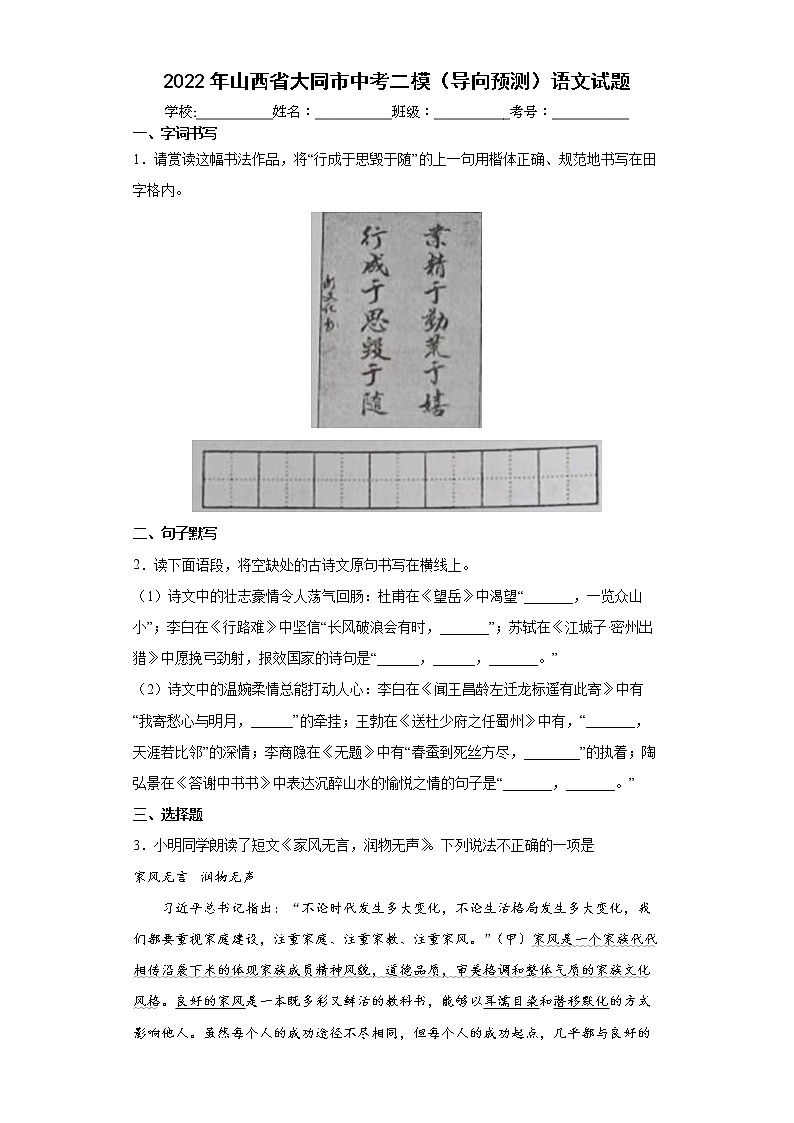 2022年山西省大同市中考二模（导向预测）语文试题
学校:___________姓名：___________班级：___________考号：___________
一、字词书写
1．请赏读这幅书法作品，将“行成于思毁于随”的上一句用楷体正确、规范地书写在田
字格内。
業精于勤荒于嬉
行成于思毀于随
二、句子默写
2．读下面语段，将空缺处的古诗文原句书写在横线上。
（1）诗文中的壮志豪情令人荡气回肠：杜甫在《望岳》中渴望“_______，一览众山
小”；李白在《行路难》中坚信“长风破浪会有时，_______”；苏轼在《江城子·密州出
猎》中愿挽弓劲射，报效国家的诗句是“______，______，_______。”
（2）诗文中的温婉柔情总能打动人心：李白在《闻王昌龄左迁龙标遥有此寄》中有
“我寄愁心与明月，______”的牵挂；王勃在《送杜少府之任蜀州》中有，“_______，
天涯若比邻”的深情；李商隐在《无题》中有“春蚕到死丝方尽，________”的执着；陶
弘景在《答谢中书书》中表达沉醉山水的愉悦之情的句子是“_______，_______。”
三、选择题
3．小明同学朗读了短文《家风无言，润物无声》。下列说法不正确的一项是
家风无言 润物无声
习近平总书记指出：“不论时代发生多大变化，不论生活格局发生多大变化，我
们都要重视家庭建设，注重家庭、注重家教、注重家风。”（甲）家风是一个家族代代
相传沿袭下来的体现家族成员精神风貌，道德品质，审美格调和整体气质的家族文化
风格。良好的家风是一本既多彩又鲜活的教科书，能够以耳濡目染和潜移默化的方式
影响他人。虽然每个人的成功途径不尽相同，但每个人的成功起点，几乎都与良好的